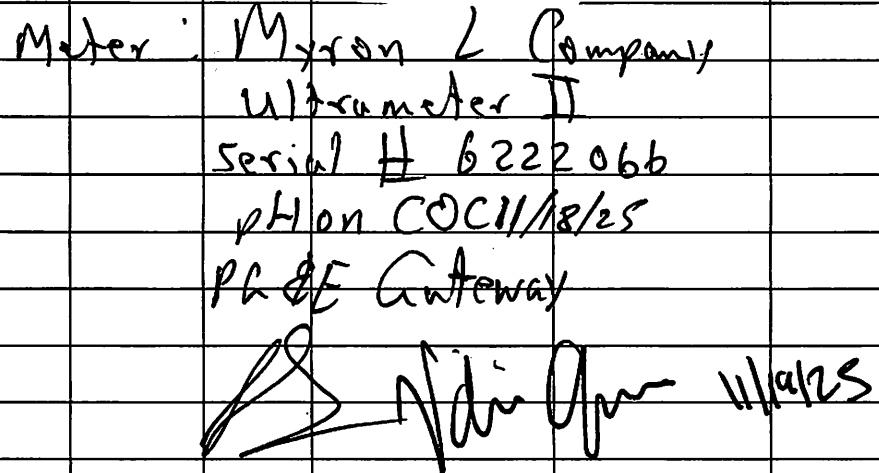 Meter : Myron L Company
Ultrameter II
Serial # 6222066
pH on COC 11/18/25
PG&E Gateway
11/19/25